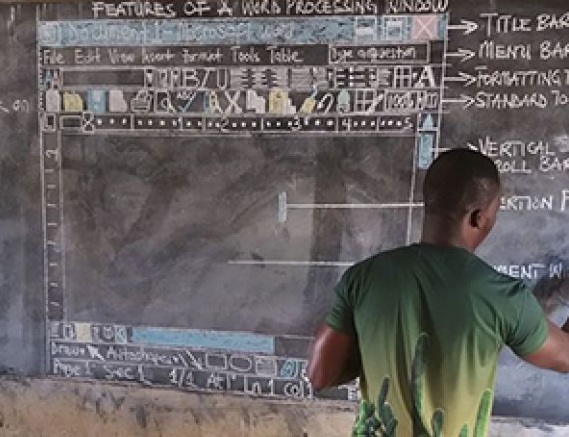 FEATURES OF A WORD PROCESSING WINDOW
Document 1 - Microsoft word
TITLE BAR
File Edit View Insert format Tools Table
Type a question
MENU BAR
B I U
A
FORMATTING
STANDARD TO
100%
on
L 8 2 3 4 5
VERTICAL
ROLL BAR
ERTION P
MENT W
Draw Autoshapes
Page 1 Sec 1 1/1 AT Ln 1